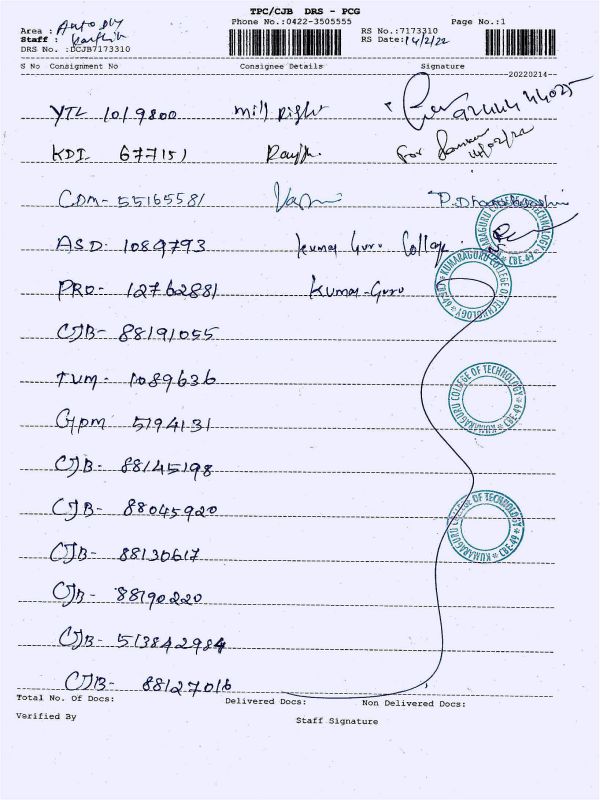 TPC/CJB DRS - PCG
Phone No.:0422-3505555
Page No.:1
Area :
Staff : Karthik
RS No.:7173310
RS Date: 14/2/22
DRS No. :DCJB7173310
S No Consignment No Consignee Details Signature
20220214
YTL 1019800 mill right
KDI 677151 for 14/02/22
CDM- 55165581
ASD- 1089793 kumar Guru College
PRO- 12762881 Kumar-Guru
CJB- 88191055
TVM- 1089636
GPM 5194131
CJB- 88145198
CJB- 88045920
CJB- 88130617
CJB- 88190220
CJB- 513842984
CJB- 88127016
KUMARAGURU COLLEGE OF TECHNOLOGY * CBE-49 *
KUMARAGURU COLLEGE OF TECHNOLOGY * CBE-49 *
KUMARAGURU COLLEGE OF TECHNOLOGY * CBE-49 *
KUMARAGURU COLLEGE OF TECHNOLOGY * CBE-49 *
Total No. Of Docs: Delivered Docs: Non Delivered Docs:
Verified By Staff Signature